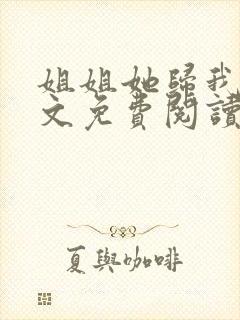 姐姐她歸我
文免費閱讀
夏與咖啡